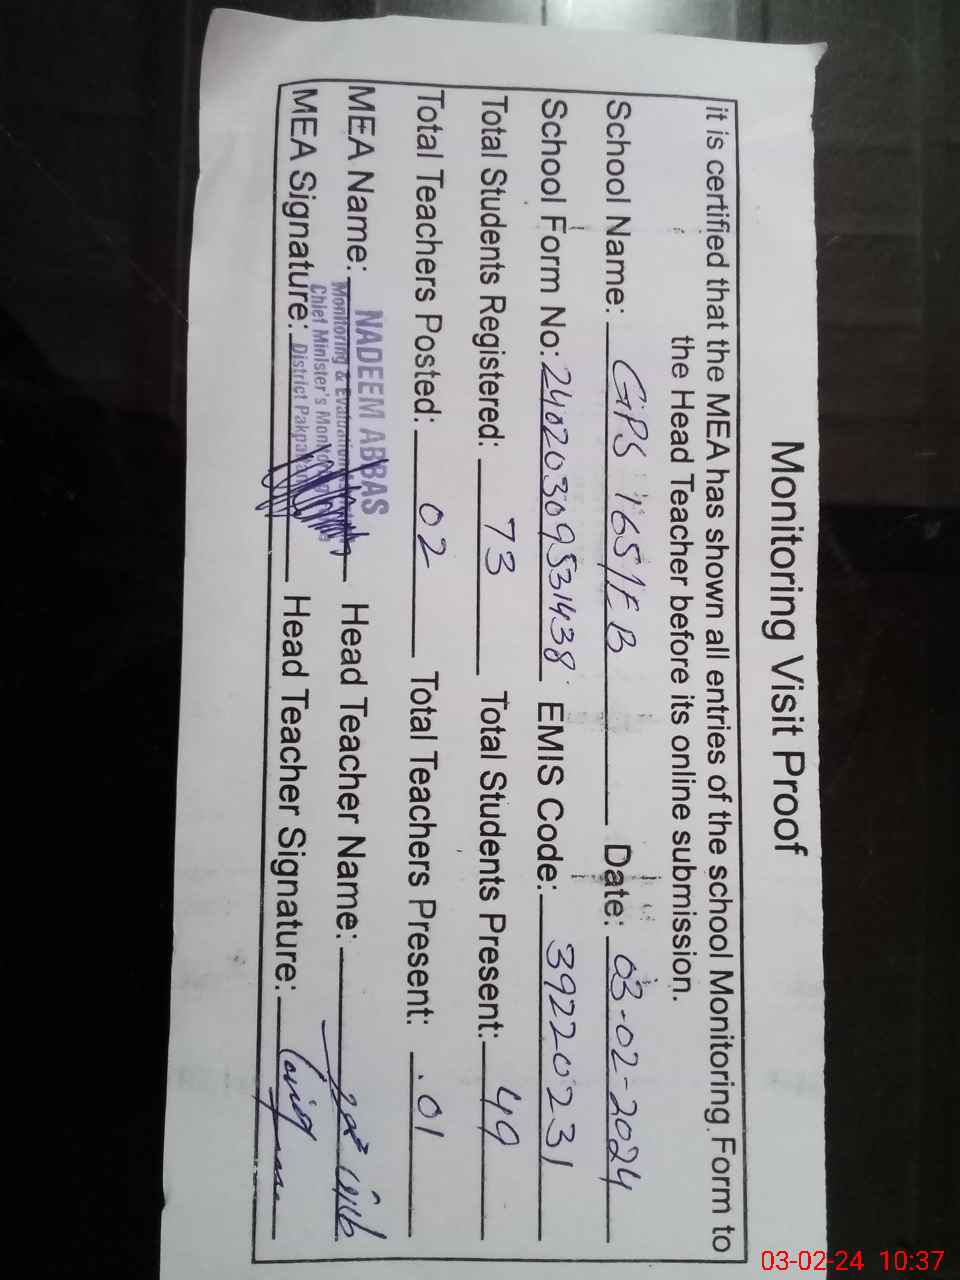 Monitoring Visit Proof
it is certified that the MEA has shown all entries of the school Monitoring Form to
the Head Teacher before its online submission.
School Name: GPS 165/EB Date: 03-02-2024
School Form No: 24020309531438 EMIS Code: 39220231
Total Students Registered: 73 Total Students Present: 49
Total Teachers Posted: 02 Total Teachers Present: .01
MEA Name: NADEEM ABBAS Head Teacher Name:
Monitoring & Evaluation
Chief Minister's
MEA Signature: District Head Teacher Signature:
03-02-24 10:37